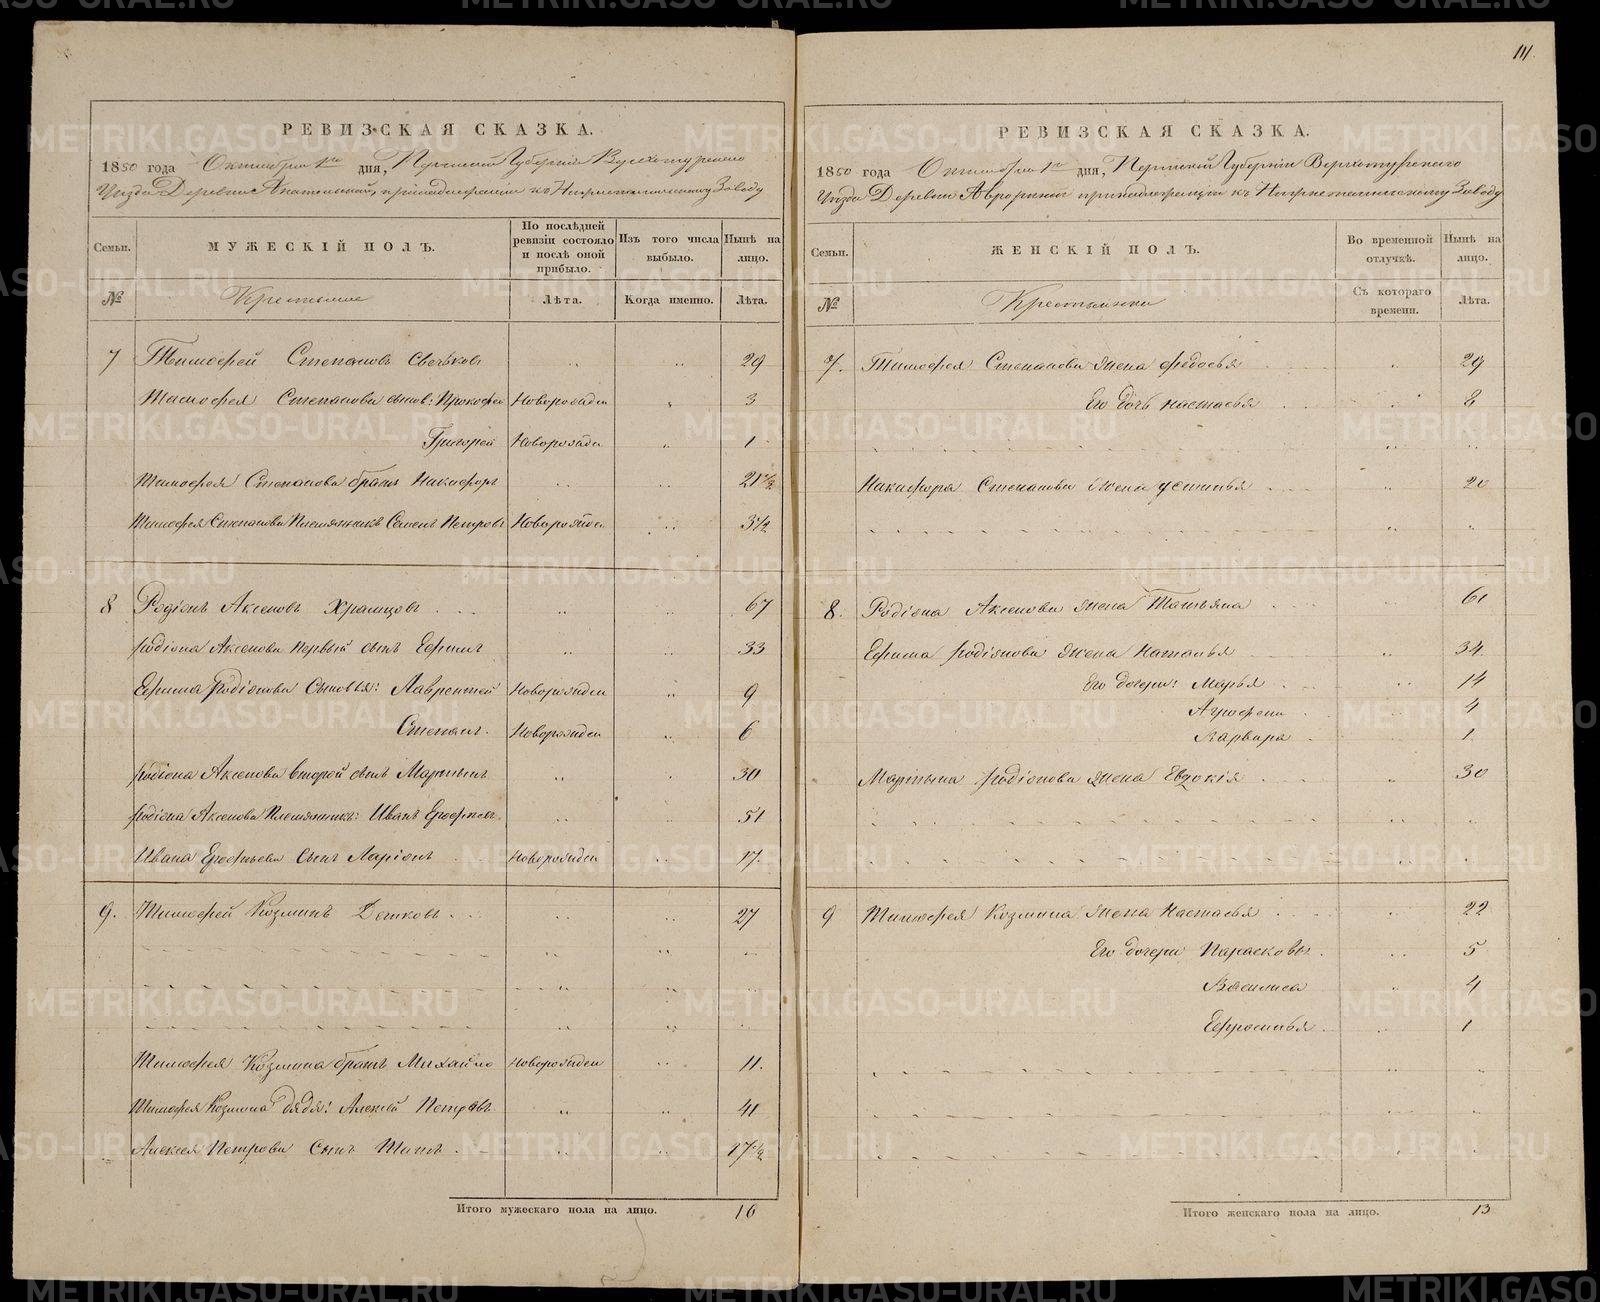 111.
РЕВИЗСКАЯ СКАЗКА.
1850 года Октября 1го дня, Пермской Губернiи Верхотурскаго
Уѣзда Деревни принадлежащей къ Заводу
Семьи.
МУЖЕСКIЙ ПОЛЪ.
По послѣдней ревизiи состояло и послѣ оной прибыло.
Изъ того числа выбыло.
Нынѣ на лицо.
№
Крестьяне
Лѣта.
Когда именно.
Лѣта.
7 Тимофей Степановъ 29
Тимофея Степанова сынов: Прокофей Новорожден 3
Григорей Новорожден 1
Тимофея Степанова братъ Никифоръ 21 1/2
Тимофея Степанова Племянникъ Семенъ Петровъ Новорожден 3 1/2
8 Родiонъ Аксеновъ Храмцовъ 67
Родiона Аксенова первый сынъ Ефимъ 33
Ефима Родiонова Сыновья: Лаврентей Новорожден 9
Степанъ. Новорожден 6
Родiона Аксенова второй сынъ Мартынъ 30
Родiона Аксенова Племянникъ: Иванъ Ерофеевъ 51
Ивана Ерофѣева Сынъ Ларiонъ Новорожден 17.
9. Тимофей Козминъ 27
Тимофея Козмина братъ Михайло Новорожден 11.
Тимофея Козмина дядя: Алексѣй Петровъ 41
Алексея Петрова Сынъ Титъ 17 1/2
Итого мужескаго пола на лицо. 16
РЕВИЗСКАЯ СКАЗКА.
1850 года Октября 1го дня, Пермской Губернiи Верхотурскаго
Уѣзда Деревни принадлежащей къ Заводу
Семьи.
ЖЕНСКIЙ ПОЛЪ.
Во временной отлучкѣ.
Нынѣ на лицо.
№
Крестьянки
Съ котораго времени.
Лѣта.
7. Тимофея Степанова жена Федосья 29
Его дочь Настасья 8
Никифора Степанова жена Устинья 20
8. Родiона Аксенова жена Татьяна 61
Ефима Родiонова жена Наталья 34
Его дочери: Марья 14
Агрофена 4
Варвара 1
Мартына Родiонова жена Евдокiя 30
9 Тимофея Козмина жена Настасья 22
Его дочери Парасковья 5
Василиса 4
Ефросинья 1
Итого женскаго пола на лицо. 13
METRIKI.GASO-URAL.RU